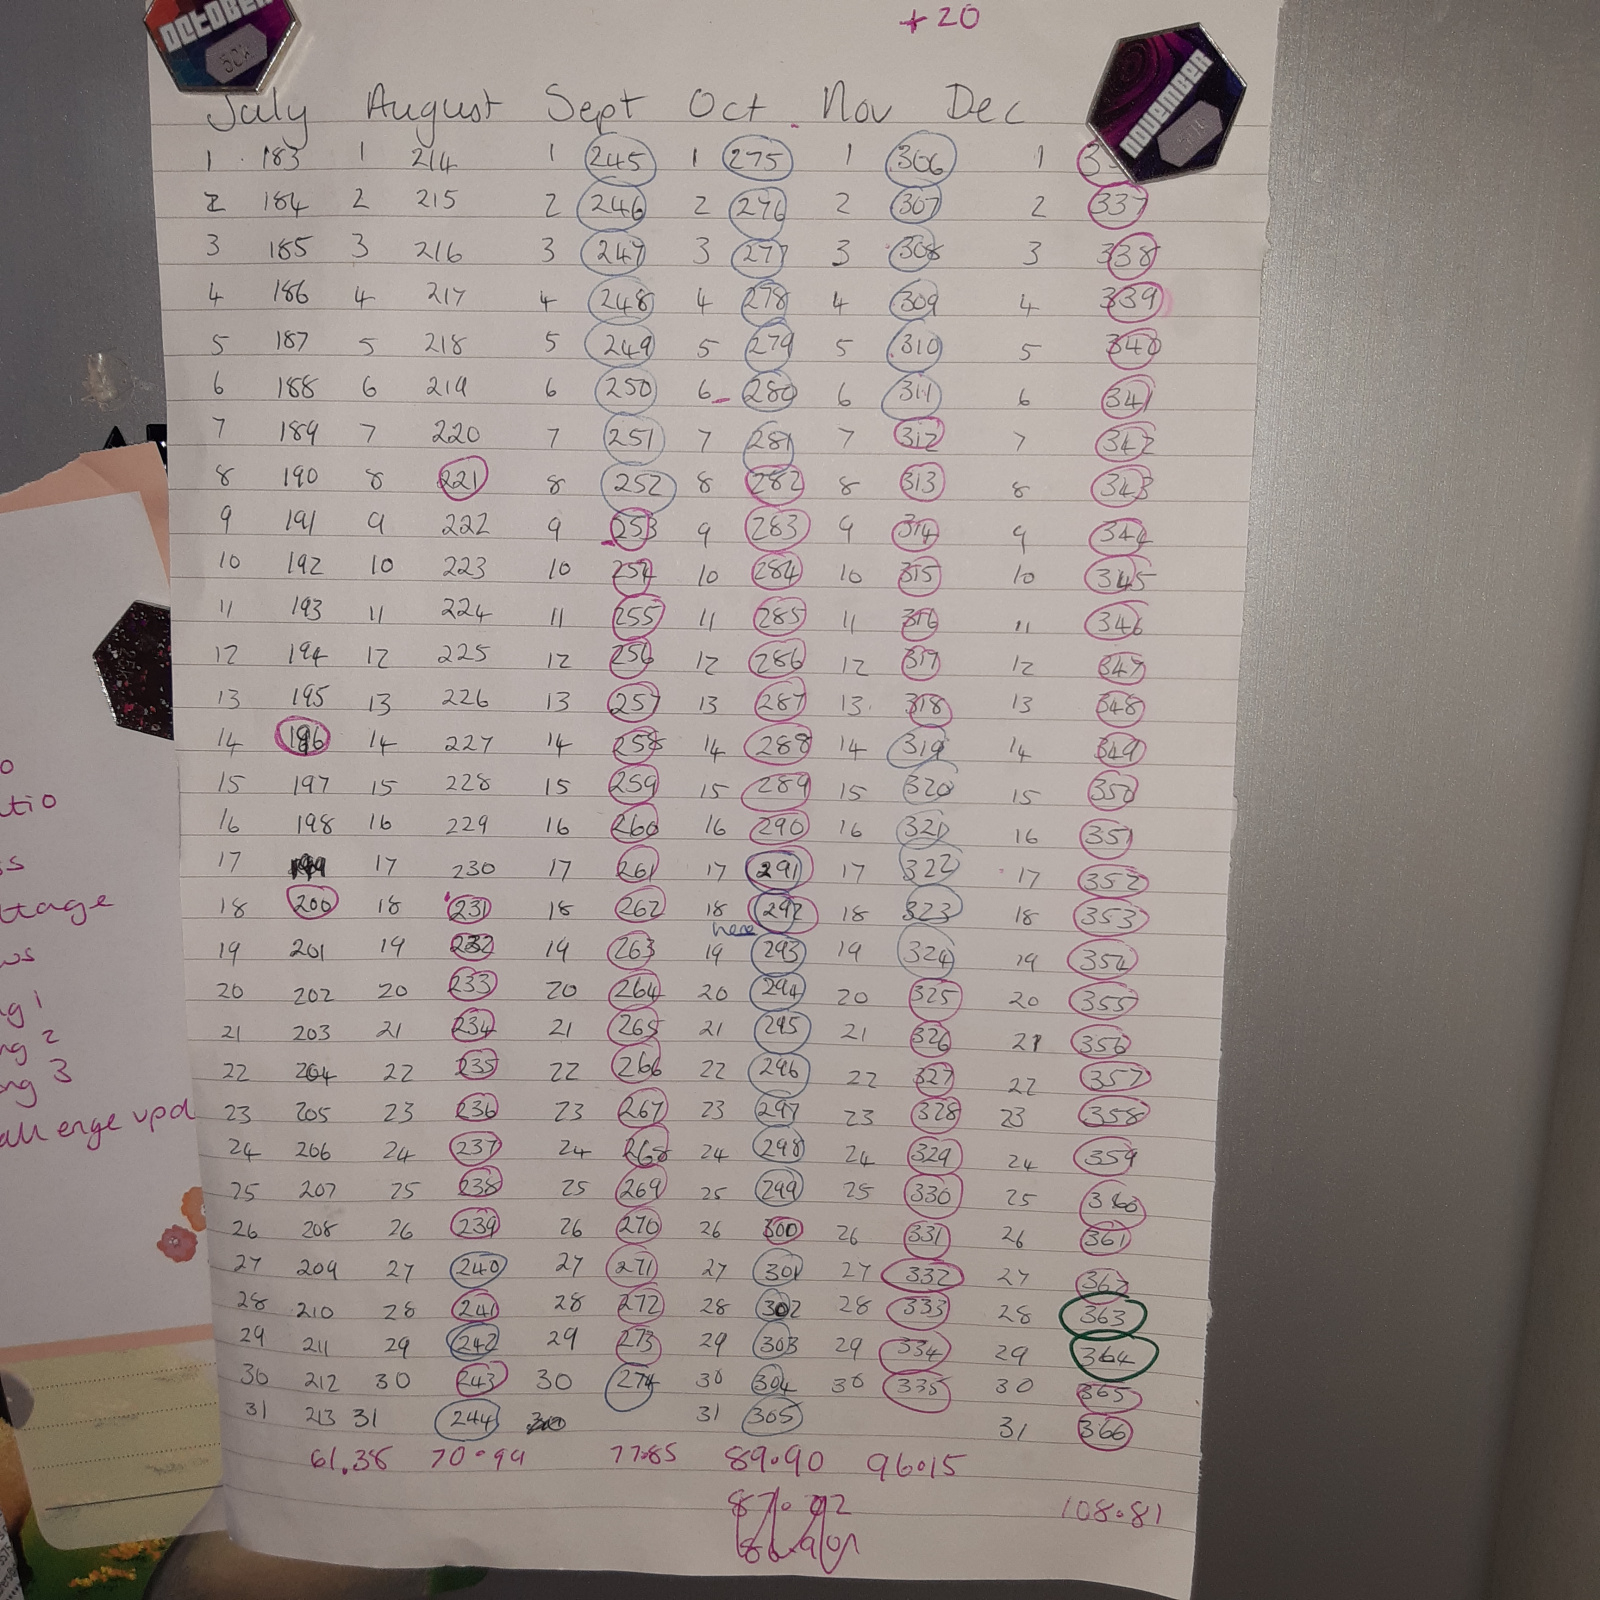 +20
OCTOBER
50K
NOVEMBER
July August Sept Oct Nov Dec
1 183 1 214 1 245 1 275 1 306 1
2 184 2 215 2 246 2 276 2 307 2 337
3 185 3 216 3 247 3 277 3 308 3 338
4 186 4 217 4 248 4 278 4 309 4 339
5 187 5 218 5 249 5 279 5 310 5 340
6 188 6 219 6 250 6 280 6 311 6 341
7 189 7 220 7 251 7 281 7 312 7 342
8 190 8 221 8 252 8 282 8 313 8 343
9 191 9 222 9 253 9 283 9 314 9 344
10 192 10 223 10 254 10 284 10 315 10 345
11 193 11 224 11 255 11 285 11 316 11 346
12 194 12 225 12 256 12 286 12 317 12 347
13 195 13 226 13 257 13 287 13 318 13 348
14 196 14 227 14 258 14 288 14 319 14 349
15 197 15 228 15 259 15 289 15 320 15 350
16 198 16 229 16 260 16 290 16 321 16 351
17 199 17 230 17 261 17 291 17 322 17 352
18 200 18 231 18 262 18 292 18 323 18 353
here
19 201 19 232 19 263 19 293 19 324 19 354
20 202 20 233 20 264 20 294 20 325 20 355
21 203 21 234 21 265 21 295 21 326 21 356
22 204 22 235 22 266 22 296 22 327 22 357
23 205 23 236 23 267 23 297 23 328 23 358
24 206 24 237 24 268 24 298 24 329 24 359
25 207 25 238 25 269 25 299 25 330 25 360
26 208 26 239 26 270 26 300 26 331 26 361
27 209 27 240 27 271 27 301 27 332 27 362
28 210 28 241 28 272 28 302 28 333 28 363
29 211 29 242 29 273 29 303 29 334 29 364
30 212 30 243 30 274 30 304 30 335 30 365
31 213 31 244 31 305 31 366
61.38 70.94 77.85 89.90 96.15
108.81
o
tio
ss
ttage
ws
ng 1
ng 2
ong 3
all enge upd